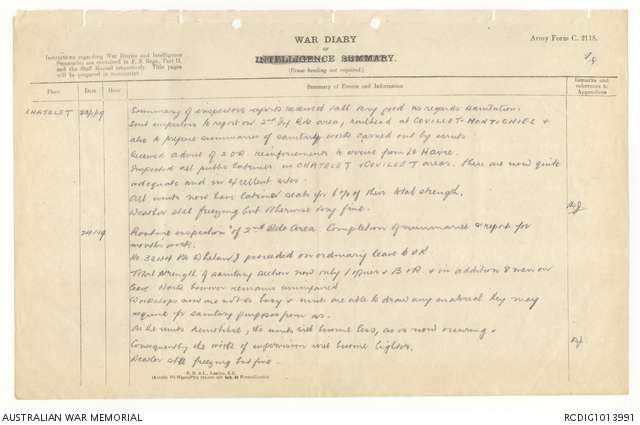 WAR DIARY
or
INTELLIGENCE SUMMARY.
(Erase heading not required.)
Army Form C. 2118.
Instructions regarding War Diaries and Intelligence
Summaries are contained in F. S. Regs., Part II.
and the Staff Manual respectively. Title pages
will be prepared in manuscript.
Place
Date
Hour
Summary of Events and Information
Remarks and
references to
Appendices
CHATELET
Summary of inspectors reports received & all very good as regards sanitation.
Sent inspectors to report on 2nd Bde area, railhead at COUILLET-MONTIGNIES &
also to prepare summaries of sanitary works carried out by units.
Received advice of 2 OR reinforcements to arrive from Le Havre.
Inspected all public latrines in CHATELET & COUILLET areas. There are now quite
adequate and in excellent order.
All units now have latrine seats for 6% of their total strength.
Weather still freezing but otherwise very fine.
Routine inspection of 2nd Bde Area. Completion of summaries & report for
months work.
Pte Whelan J proceeded on ordinary leave to UK
Total strength of sanitary section now only 1 officer & OR & in addition 8 men on
leave. Work however remains unimpaired
Workshops now are not so busy & units are able to draw any material they may
require for sanitary purposes from us.
As the units demobilise, the units will become less, as is now occurring &
Consequently the work of supervision will become lighter.
Weather still freezing but fine.
AUSTRALIAN WAR MEMORIAL
RCDIG1013991